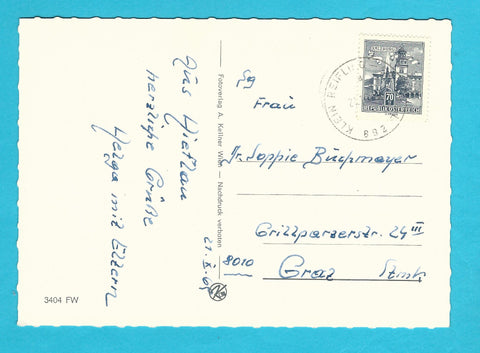 Aus Hieflau
herzliche Grüße
Helga mit Eltern
21.X.69
Fotoverlag A. Kellner Wien – Nachdruck verboten
3404 FW
SALZBURG
70
REPUBLIK ÖSTERREICH
KLEIN REIFLING
Frau
Dr. Soppie Buchmayer
Grillparzerstr. 24 III
8010
Graz Stmk